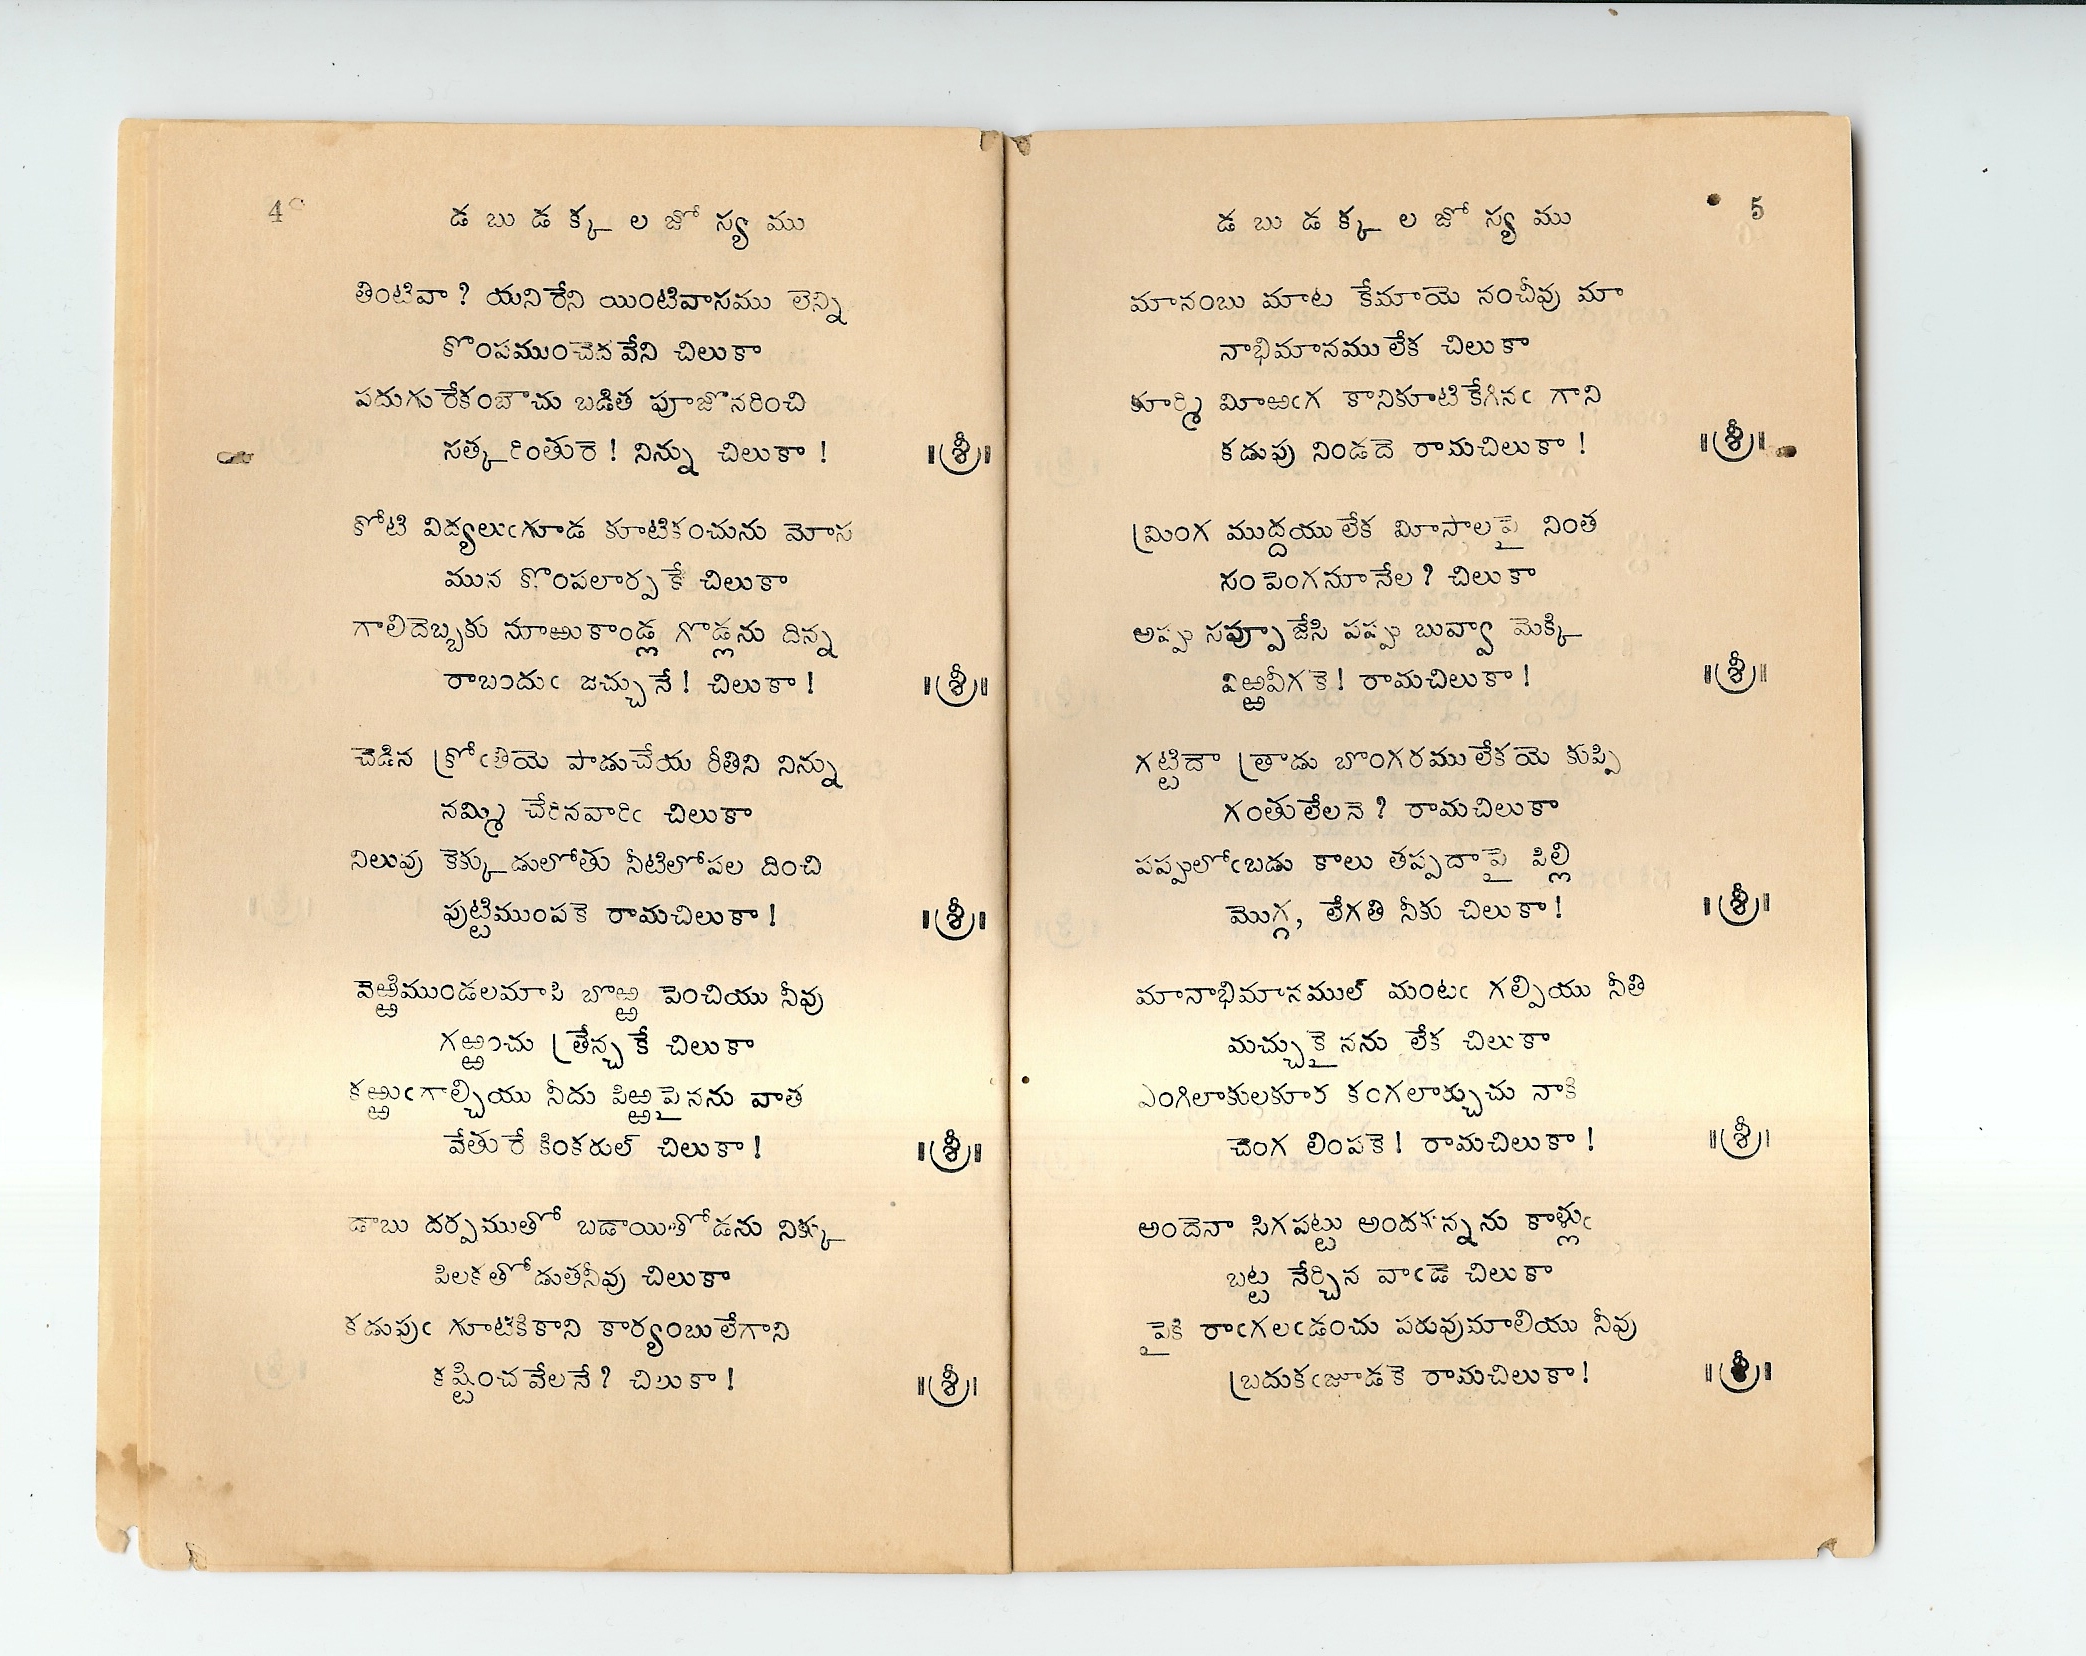 4
డ బు డ క్క ల జో స్య ము
తింటివా? యనిరేని యింటివాసము లెన్ని
కొంపముంచెదవేని చిలుకా
పదుగురేకంబౌచు బడిత పూజొనరించి
సత్కరింతురె! నిన్ను చిలుకా! ॥శ్రీ॥
కోటి విద్యలుఁగూడ కూటికంచును మోస
మున కొంపలార్పకే చిలుకా
గాలిదెబ్బకు నూఱుకాండ్ల గొడ్లను దిన్న
రాబందుఁ జచ్చునే! చిలుకా! ॥శ్రీ॥
చెడిన క్రోఁతియె పాడుచేయు రీతిని నిన్ను
నమ్మి చేరినవారిఁ చిలుకా
నిలువు కెక్కుడులోతు నీటిలోపల దించి
పుట్టిముంపకె రామచిలుకా! ॥శ్రీ॥
వెఱ్ఱిముండలమాపి బొఱ్ఱ పెంచియు నీవు
గఱ్ఱంచు త్రేన్చకే చిలుకా
కఱ్ఱుఁగాల్చియు నీదు పిఱ్ఱపైనను వాత
వేతురే కింకరుల్ చిలుకా! ॥శ్రీ॥
డాబు దర్పముతో బడాయితోడను నిక్కు
పిలకతోడుతనీవు చిలుకా
కడుపుఁ గూటికికాని కార్యంబులేగాని
కష్టించవేలనే? చిలుకా! ॥శ్రీ॥
డ బు డ క్క ల జో స్య ము
5
మానంబు మాట కేమాయె నంచీవు మా
నాభిమానములేక చిలుకా
కూర్మి మీఱఁగ కానికూటికేగినఁ గాని
కడుపు నిండదె రామచిలుకా! ॥శ్రీ॥
మ్రింగ ముద్దయులేక మీసాలపై నింత
సంపెంగనూనేల? చిలుకా
అప్పు సప్పూజేసి పప్పు బువ్వా మెక్కి
విఱ్ఱవీగకె! రామచిలుకా! ॥శ్రీ॥
గట్టిదా త్రాడు బొంగరములేకయె కుప్పి
గంతులేలనె? రామచిలుకా
పప్పులోఁబడు కాలు తప్పదాపై పిల్లి
మొగ్గ, లేగతి నీకు చిలుకా! ॥శ్రీ॥
మానాభిమానముల్ మంటఁ గల్పియు నీతి
మచ్చుకైనను లేక చిలుకా
ఎంగిలాకులకూర కంగలార్చుచు నాకి
చెంగ లింపకె! రామచిలుకా! ॥శ్రీ॥
అందెనా సిగపట్టు అందకున్నను కాళ్లుఁ
బట్ట నేర్చిన వాఁడె చిలుకా
పైకి రాఁగలఁడంచు పరువుమాలియు నీవు
బ్రదుకఁజూడకె రామచిలుకా! ॥శ్రీ॥